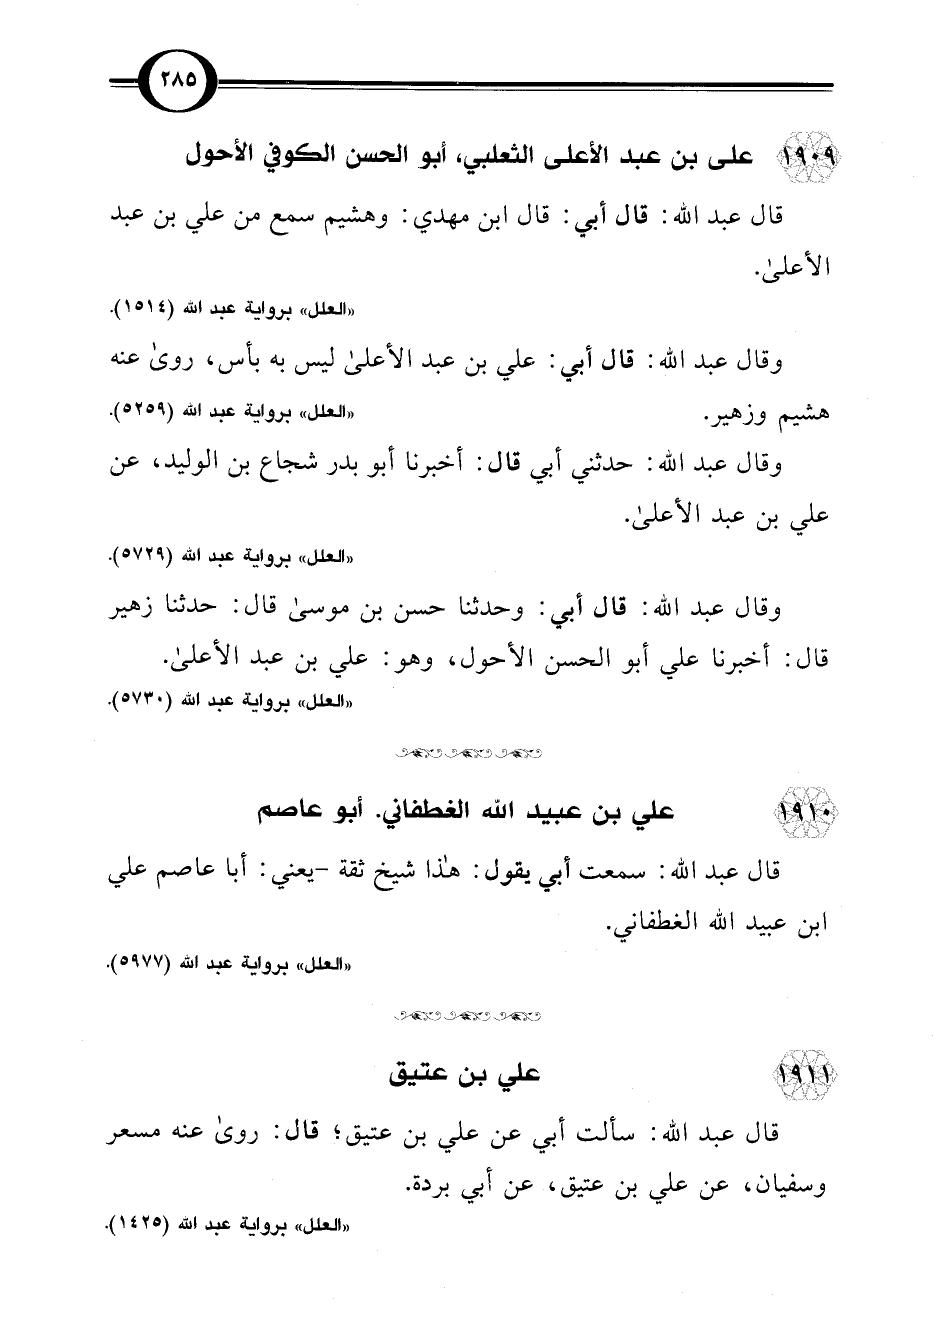 ٢٨٥
١٩٠٩ علي بن عبد الأعلى الثعلبي، أبو الحسن الكوفي الأحول
قال عبد الله: قال أبي: قال ابن مهدي: وهشيم سمع من علي بن عبد
الأعلىٰ.
«العلل» برواية عبد الله (١٥١٤).
وقال عبد الله: قال أبي: علي بن عبد الأعلىٰ ليس به بأس، روىٰ عنه
هشيم وزهير. «العلل» برواية عبد الله (٥٢٥٩).
وقال عبد الله: حدثني أبي قال: أخبرنا أبو بدر شجاع بن الوليد، عن
علي بن عبد الأعلىٰ.
«العلل» برواية عبد الله (٥٧٢٩).
وقال عبد الله: قال أبي: وحدثنا حسن بن موسىٰ قال: حدثنا زهير
قال: أخبرنا علي أبو الحسن الأحول، وهو: علي بن عبد الأعلىٰ.
«العلل» برواية عبد الله (٥٧٣٠).
١٩١٠ علي بن عبيد الله الغطفاني. أبو عاصم
قال عبد الله: سمعت أبي يقول: هٰذا شيخ ثقة -يعني: أبا عاصم علي
ابن عبيد الله الغطفاني.
«العلل» برواية عبد الله (٥٩٧٧).
١٩١١ علي بن عتيق
قال عبد الله: سألت أبي عن علي بن عتيق؛ قال: روىٰ عنه مسعر
وسفيان، عن علي بن عتيق، عن أبي بردة.
«العلل» برواية عبد الله (١٤٢٥).